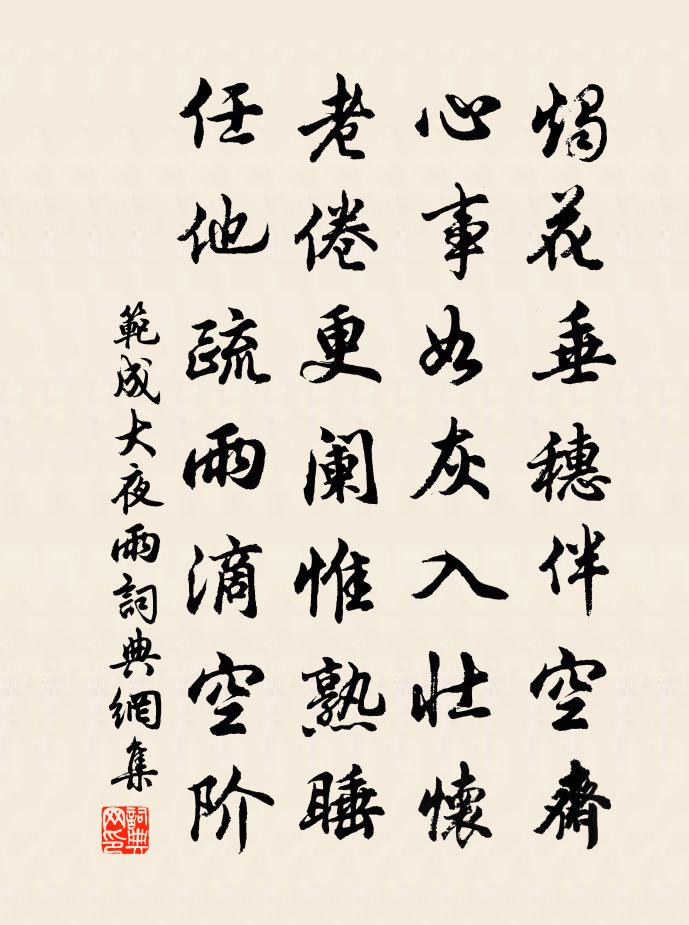 燭花垂穗伴空齋
心事如灰入壮懷
老倦更阑惟熟睡
任他疏雨滴空阶
範成大夜雨詞典網集
詞典网印